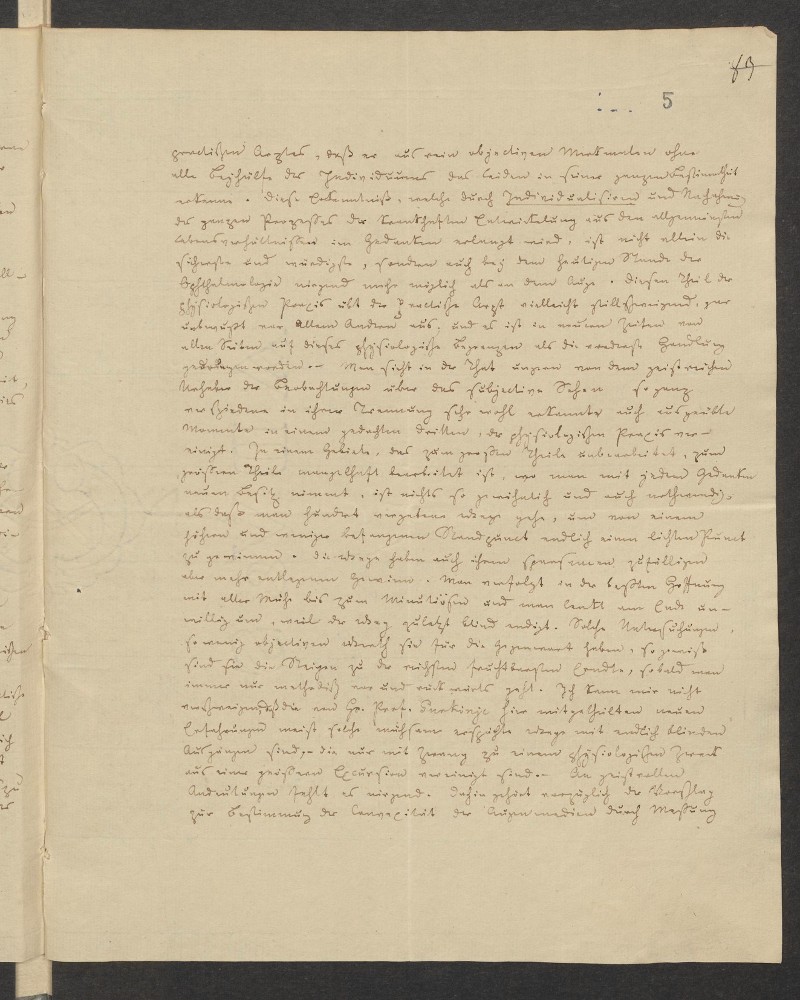 89
5
practischen Arztes, daß er aus rein objectiven Merkmalen ohne
alle Beyhülfe des Individuums das Leiden in seiner ganzen Bestimmtheit
erkenne. Diese Erkenntniß, welche durch Individualisiren und
des ganzen Prozesses der krankhaften Entwickelung aus den allgemeinsten
Lebensverhältnissen im Gedanken erlangt wird, ist nicht allein die
sicherste und würdigste, sondern auch bey dem heutigen Stande der
Ophthalmologie nirgend mehr möglich als an dem Auge. Diesen Theil der
physiologischen Praxis übt der practische Arzt vielleicht stillschweigend, gar
unbewußt vor allem Andern aus, und es ist in neuern Zeiten von
allen Seiten auf dieses physiologische Begrenzen als die Handlung
gedrungen worden. – Man sieht in der That ungern von dem geistreichen
Urheber der Beobachtungen über das subjective Sehen so ganz
verschiedene in ihrer Trennung sehr wohl erkannte auch ausgeübte
Momente in einem gedachten dritten, der physiologischen Praxis ver-
einigt. In einem Gebiete, das zum großen Theile unbearbeitet, zum
größern Theile mangelhaft bearbeitet ist, wo man mit jedem Gedanken
neuen Besitz nimmt, ist nichts so gewöhnlich und auch nothwendig,
als daß man hundert vergebene Wege gehe, um von einem
höhern und weniger befangenen Standpunct endlich einen lichten Punct
zu gewinnen. Die Wege haben auch ihren sparsamen zufälligen
aber mehr entlegenen Gewinn. Man verfolgt in der besten Hoffnung
mit aller Mühe bis zum Minutiösen und man lenkt am Ende un-
willig um, weil der Weg zuletzt blind endigt. Solche Untersuchungen,
so wenig objectiven Werth sie für die Gegenwart haben, so gewiß
sind sie die Steigen zu der reichsten fruchtbarsten Ernte, sobald man
immer nur methodisch vor und rückwärts geht. Ich kann mir nicht
verschweigen, daß die von Hr. Prof. Purkinje hier mitgetheilten neuen
Erfahrungen meist solche mühsam erspähte Wege mit endlich blinden
Ausgängen sind, – die nur mit Zwang zu einem physiologischen Zweck
aus einer größeren Excursion vereinigt sind. – An geistvollen
Andeutungen fehlt es nirgend. Dahin gehört vorzüglich der Vorschlag
zur Bestimmung der Convexität der Augenmedien durch Messung